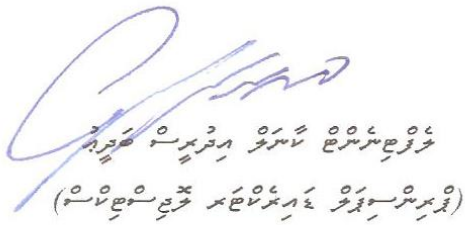 ލެފްޓިނެންޓް ކާނަލް އިދުރީސް ބަދީޢު
(ޕްރިންސިޕަލް ޑައިރެކްޓަރ ލޮޖިސްޓިކްސް)